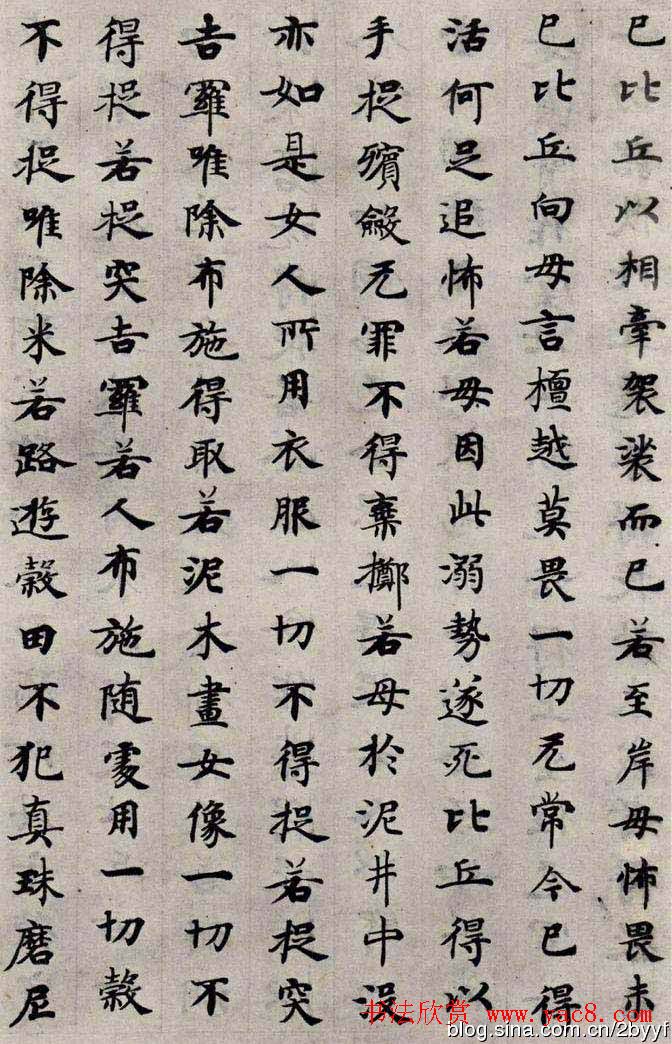 已比丘以相牽袈裟而已若至岸母怖畏未
已比丘向母言檀越莫畏一切无常今已得
活何足追怖若母因此溺勢遂死比丘得以
手捉殯斂无罪不得棄擲若母於泥井中没
亦如是女人所用衣服一切不得捉若捉突
吉羅唯除布施得取若泥木畫女像一切不
得捉若捉突吉羅若人布施随處用一切穀
不得捉唯除米若路遊穀田不犯真珠磨尼
书法欣赏 www.yac8.com
blog.sina.com.cn/2byyf